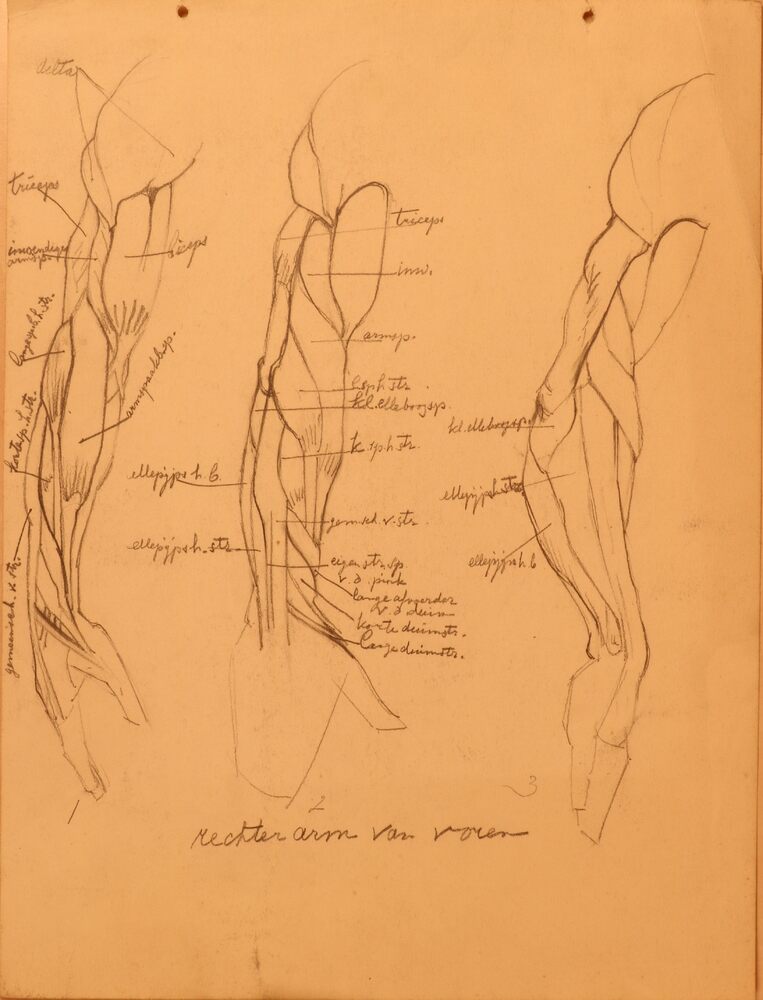 delta
triceps
inwendige
armsp.
biceps
langespaakb.h.str.
armspaakbsp.
korte sp.h.str.
gemeensch. v. str.
1
triceps
inw.
armsp.
l.sp.h.str.
kl. elleboogsp.
k.sp.h.str.
ellepijps h. b.
gem.sch.v.str.
ellepijpsh.str.
eigen str.sp.
v.d. pink
lange afvoerder
v.d duim
korte duimstr.
lange duimstr.
2
kl. elleboogsp.
ellepijpsh.str.
ellepijpsh b
3
rechter arm van voren